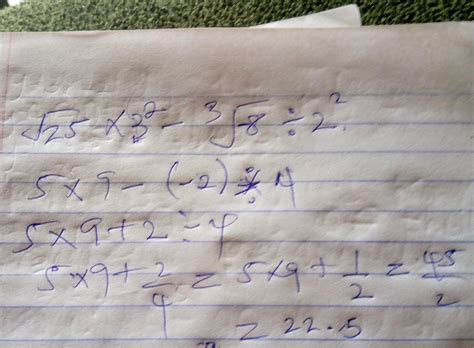 √25 × 3² - ³√-8 ÷ 2²
5 × 9 - (-2) ÷ 4
5 × 9 + 2 ÷ 4
5 × 9 + 2/4 = 5 × 9 + 1/2 = 45/2
= 22.5